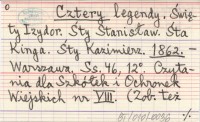 Cztery legendy. Świę-
ty Izydor. Sty Stanisław. Sta
Kinga. Sty Kazimierz. 1862. -
Warszawa. Ss. 46, 12°. Czyta-
nia dla Szkółek i Ochronek
Wiejskich nr VIII. (Zob. też